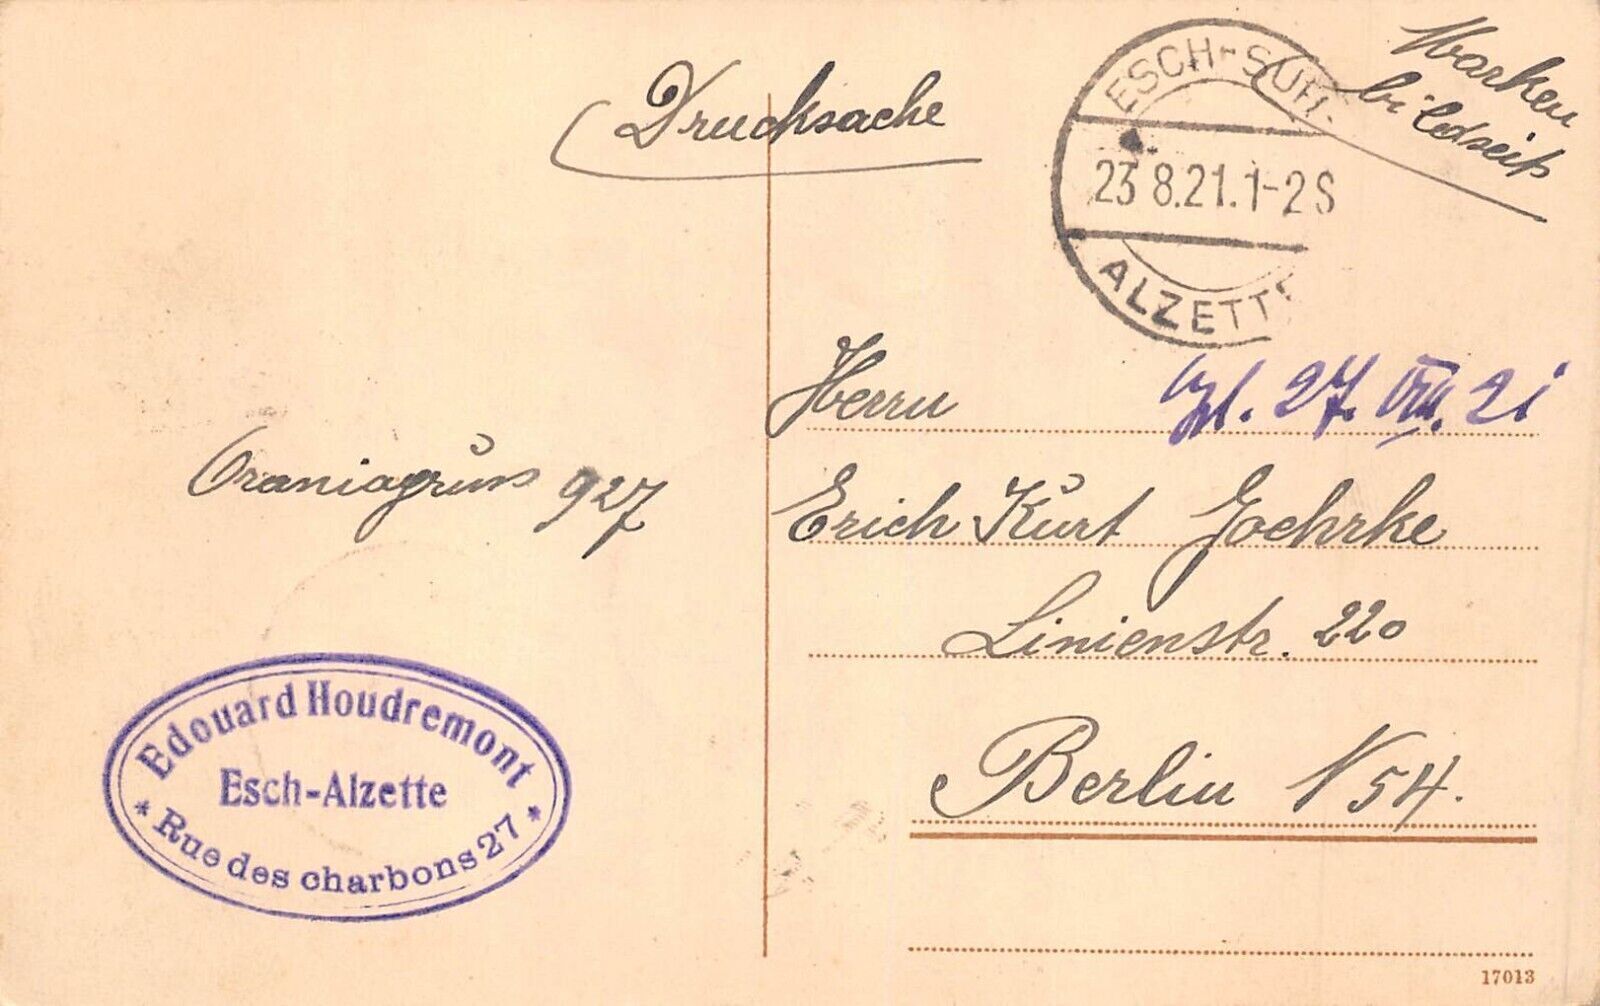 Drucksache
Marken
bildseit
ESCH-SUR-
23 8.21.1-2S
ALZETTE
Herrn
27. VIII. 21
Oraniagruss 927
Erich Kurt Goehrke
Linienstr. 220
Berlin N 54.
Edouard Houdremont
Esch-Alzette
* Rue des charbons 27 *
17013